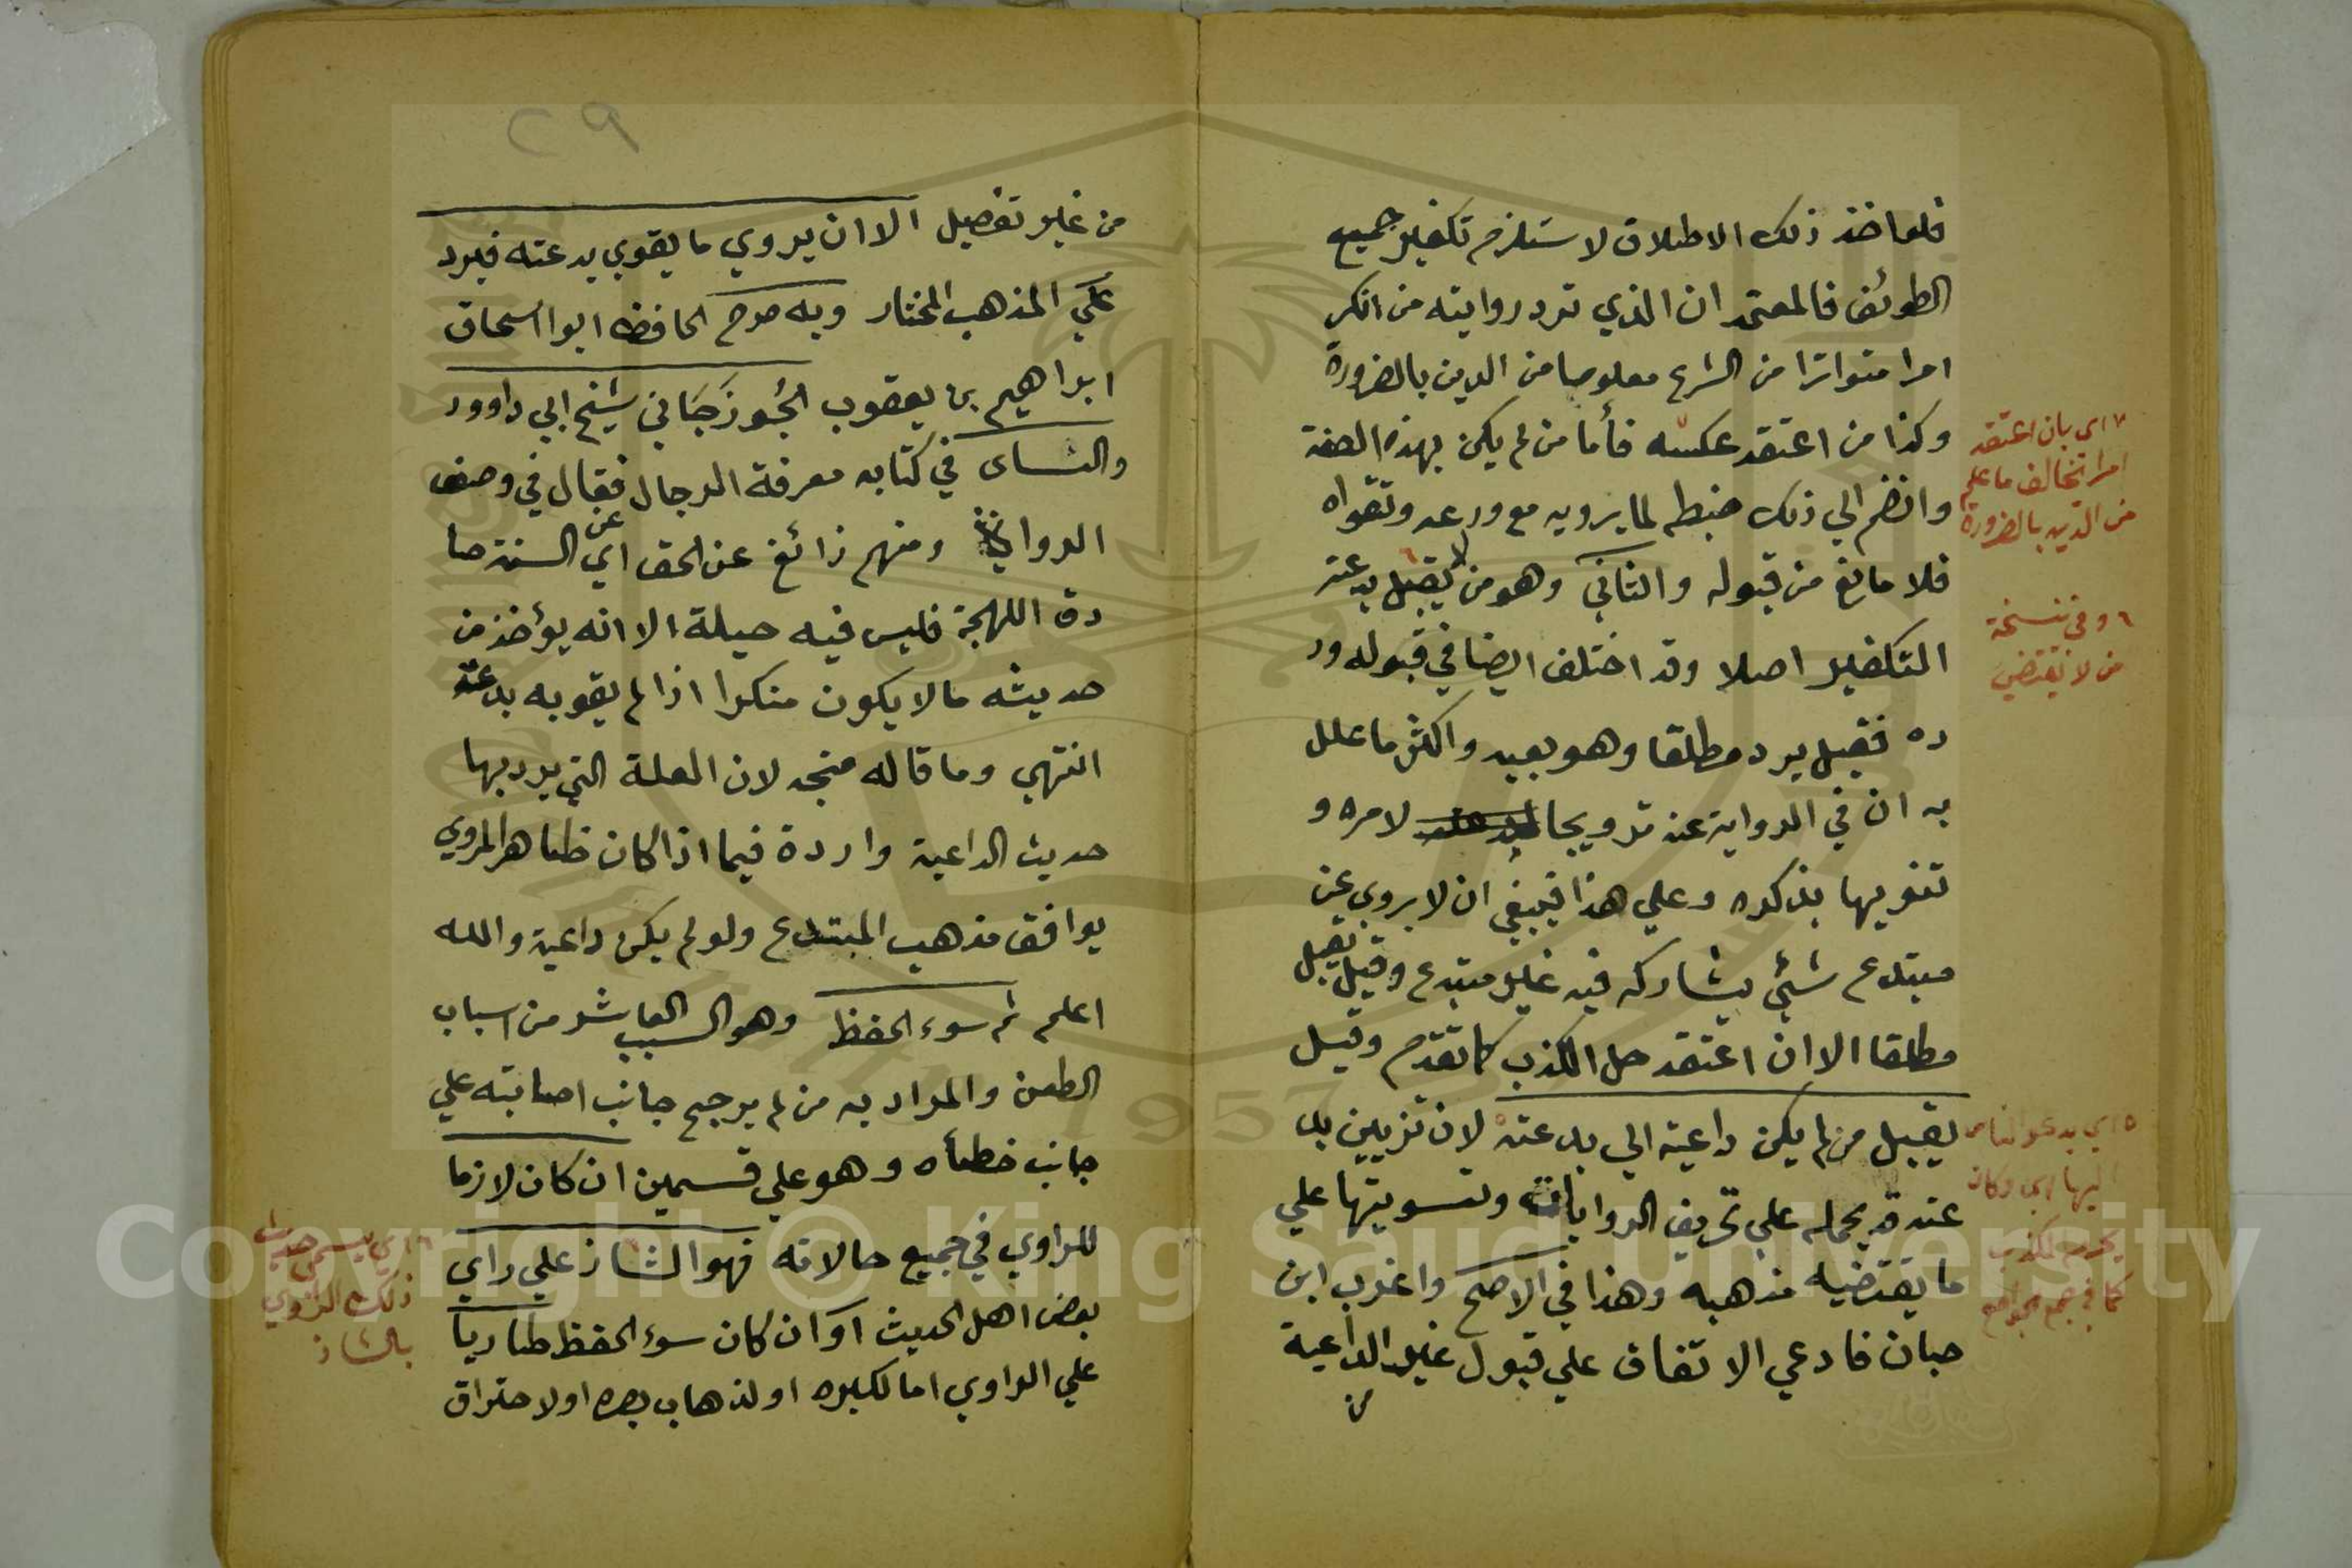 فلو اخذ ذلك الاطلاق لاستلزم تكفير جميع
الطوئف فالمعتمد ان الذي ترد روايته من انكر
امرا متواترا من الشرع معلوما من الدين بالضرورة
وكذا من اعتقد عكسه فأما من لم يكن بهذه الصفة
وانضم الي ذلك ضبطه لما يرويه مع ورعه وتقواه
فلا مانع من قبوله والثاني وهو من لا يقبل بدعته
التكفير اصلا وقد اختلف ايضا في قبوله ور
ده فقيل يرد مطلقا وهو بعيد واكثر ما علل
به ان في الرواية عنه ترويجا لامره و
تنويها بذكره وعلي هذا فينبغي ان لا يروي عن
مبتدع شئي يشاركه فيه غير مبتدع وقيل يقبل
مطلقا الا ان اعتقد حل الكذب كما تقدم وقيل
يقبل من لم يكن داعية الي بدعته لان تزيين بد
عته قد يحمله علي تحريف الروايات وتسويتها علي
ما يقتضيه مذهبه وهذا في الاصح واغرب ابن
حبان فادعي الاتفاق علي قبول غير الداعية
من
٧ اي بان اعتقد
امرا تخالف ما علم
من الدين بالضرورة
٦ وفي نسخة
من لا يقتضي
٥ اي يدعو الناس
اليها اي وكان
يحرم الكذب
كما في جمع الجوامع
٢٩
من غير تفصيل الا ان يروي ما يقوي بدعته فيرد
علي المذهب المختار وبه صرح الحافظ ابو اسحاق
ابراهيم بن يعقوب الجُوزَجَاني شيخ ابي داوود
والنساى في كتابه معرفة الرجال فقال في وصف
الرواة ومنهم زائغ عن الحق اي عن السنة صا
دق اللهجة فليس فيه حيلة الا انه يؤخذ من
حديثه ما لا يكون منكرا اذا لم يقو به بدعته
انتهي وما قاله متجه لان العلة التي يرد بها
حديث الداعية واردة فيما اذا كان ظاهر المروي
يوافق مذهب المبتدع ولو لم يكن داعية والله
اعلم ثم سوء الحفظ وهو السبب العاشر من اسباب
الطعن والمراد به من لم يرجح جانب اصابته علي
جانب خطأه وهو علي قسمين ان كان لازما
للراوي في جميع حالاته فهو الشاذ علي راي
بعض اهل الحديث او ان كان سوء الحفظ طاريا
علي الراوي اما لكبره او لذهاب بصره او لاحتراق
٦ اي يسمى حديث
ذلك الراوي
بالشاذ
Copyright © King Saud University
1957